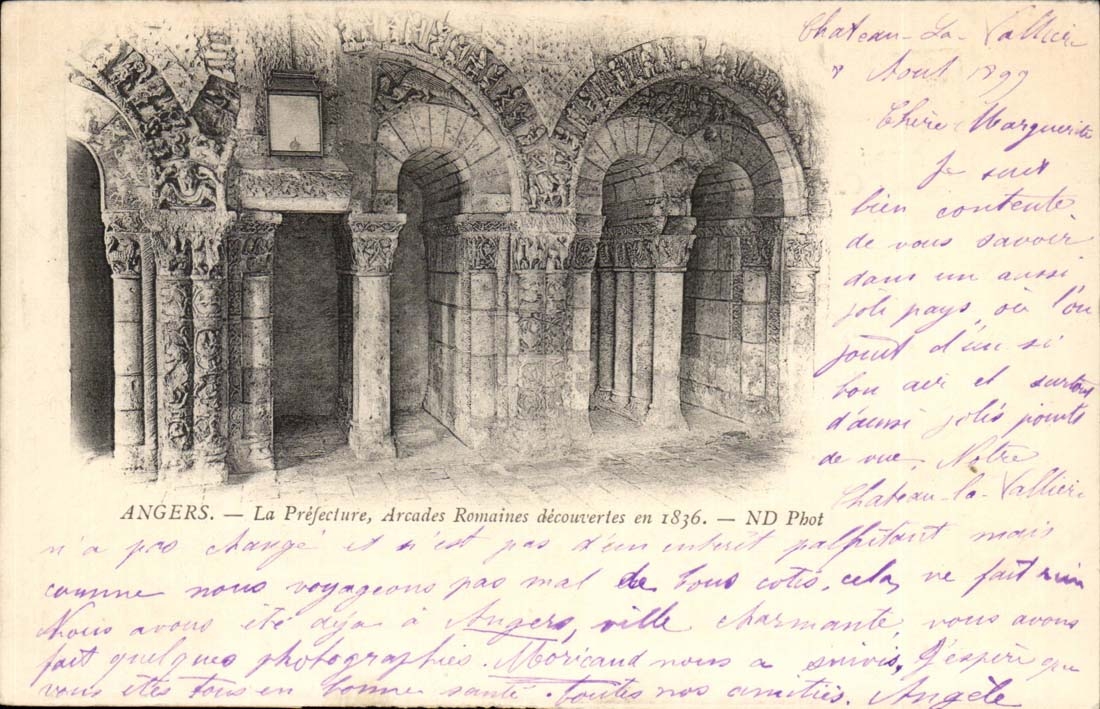 Chateau-La-Vallière
8 Aout 1899
Chère Marguerite
Je suis
bien contente
de vous savoir
dans un aussi
joli pays où l'on
jouit d'un si
bon air et surtout
d'aussi jolis points
de vue. Notre
Chateau-la-Vallière
ANGERS. — La Préfecture, Arcades Romaines découvertes en 1836. — ND Phot
n'a pas changé et n'est pas d'un intérêt palpitant mais
comme nous voyageons pas mal de tous cotés, cela ne fait rien
Nous avons été déja à Angers, ville charmante, vous avons
fait quelques photographies. Moricaud nous a suivis, J'espère que
vous êtes tous en bonne santé. Toutes nos amitiés. Angèle